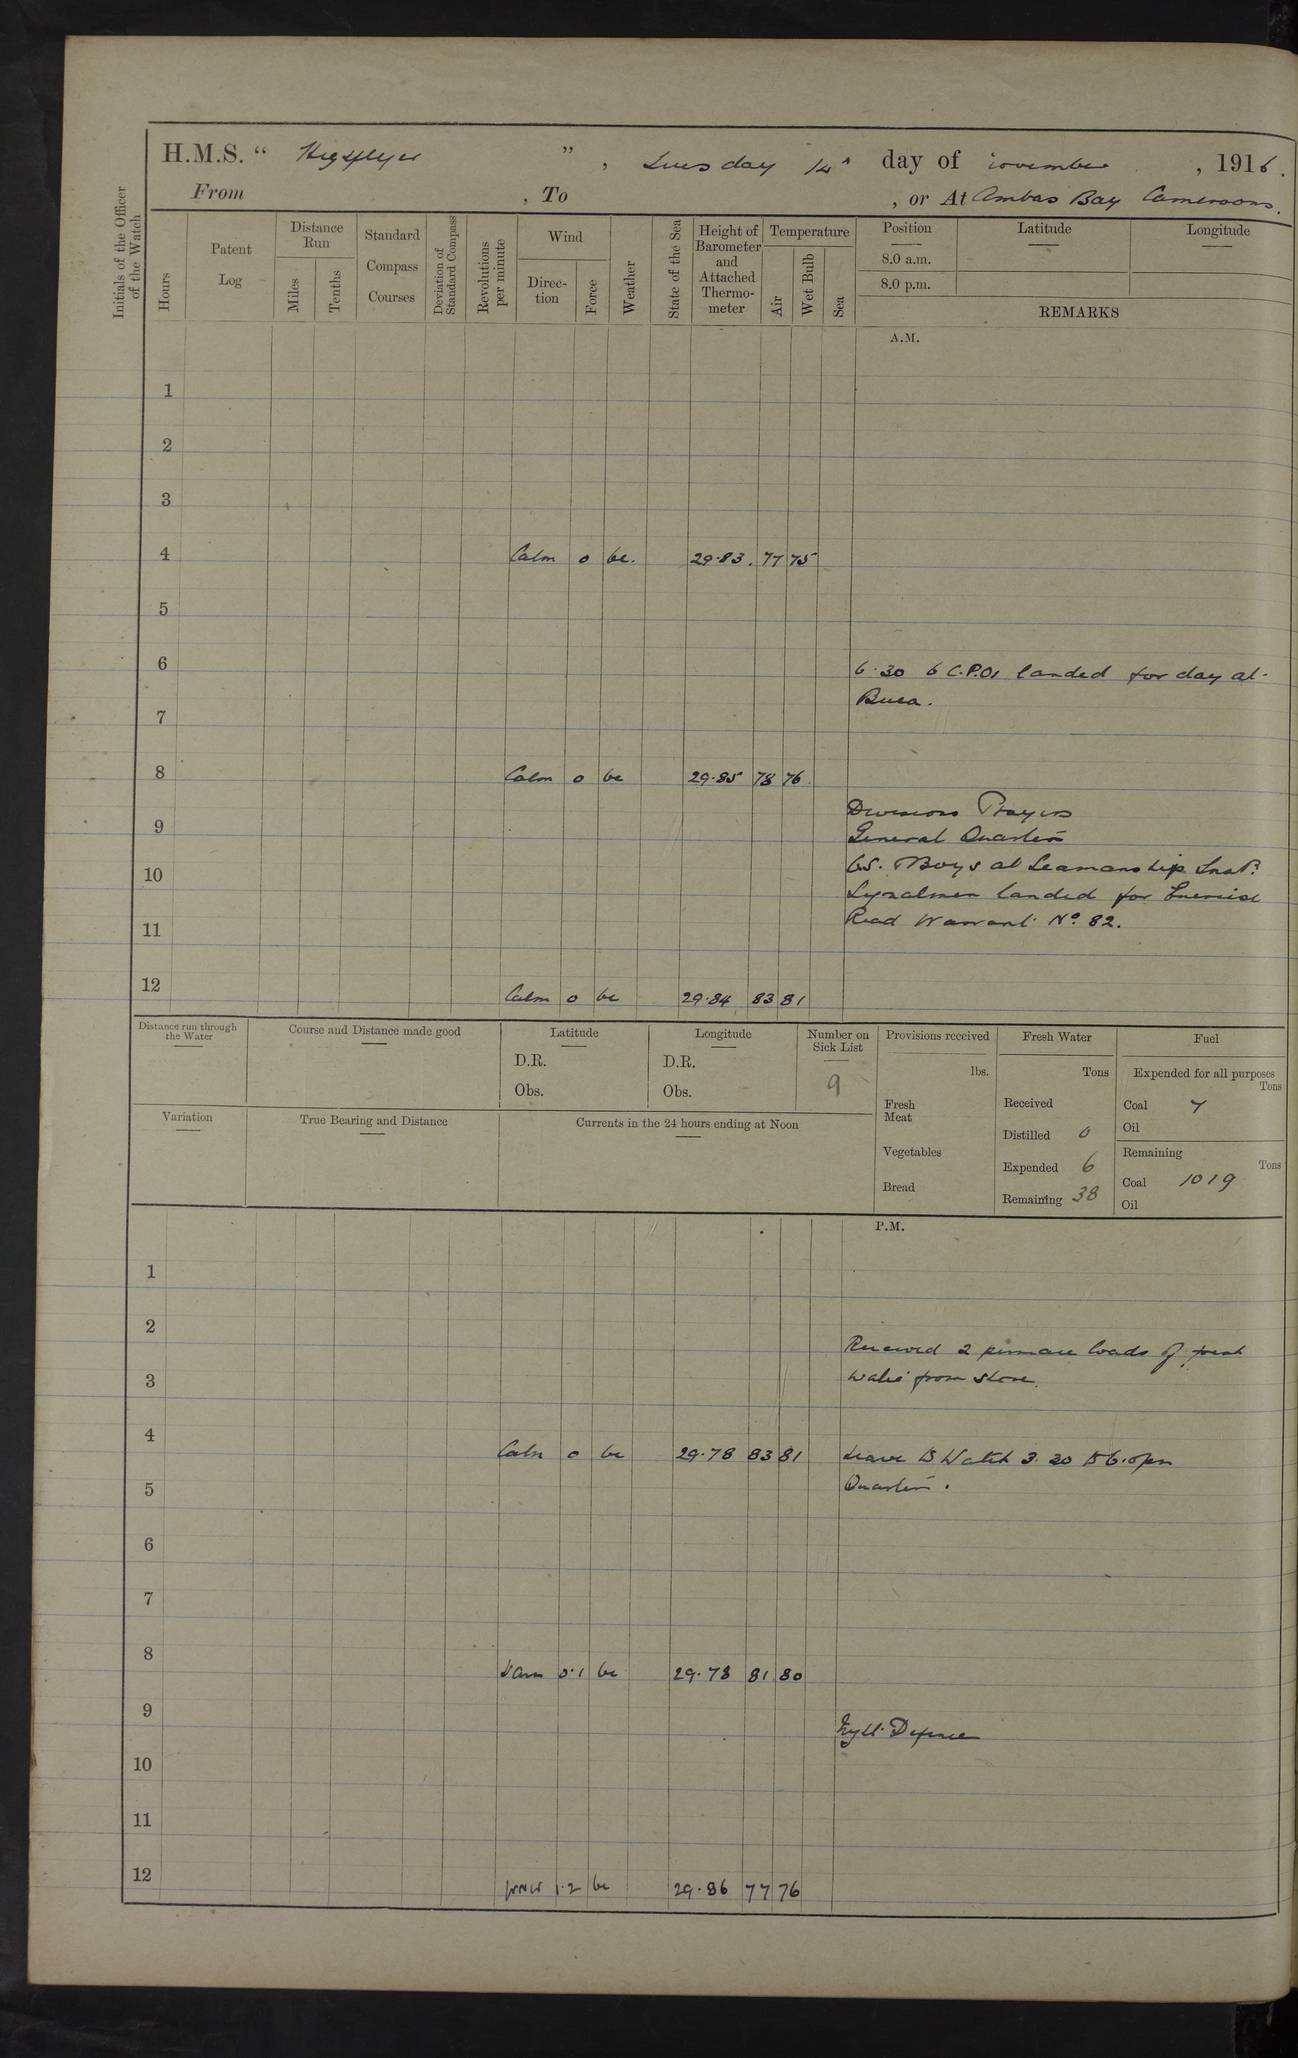 H.M.S. “ Highflyer ” , Tuesday 14th day of November , 1916.
From , To , or At Ambas Bay Cameroons.
Initials of the Officer of the Watch
Hours
Patent Log
Distance Run
Miles
Tenths
Standard Compass Courses
Deviation of Standard Compass
Revolutions per minute
Wind
Direction
Force
Weather
State of the Sea
Height of Barometer and Attached Thermometer
Temperature
Air
Wet Bulb
Sea
Position
8.0 a.m.
8.0 p.m.
Latitude
Longitude
REMARKS
A.M.
1
2
3
4 Calm 0 bc. 29.83. 77 75
5
6
6.30 6 C.P.Os landed for day at
Buea.
7
8 Calm 0 bc 29.85 78 76
Divisions Prayers
9
General Quarters
10
Boys at Seamanship Inst.
Signalmen landed for Exercise
Read Warrant No. 82.
11
12 Calm 0 bc 29.84 83 81
Distance run through the Water
Course and Distance made good
Latitude
D.R.
Obs.
Longitude
D.R.
Obs.
Number on Sick List
9
Provisions received
lbs.
Fresh Meat
Vegetables
Bread
Fresh Water
Tons
Received
Distilled 0
Expended 6
Remaining 38
Fuel
Expended for all purposes
Tons
Coal 7
Oil
Remaining
Tons
Coal 1019
Oil
Variation
True Bearing and Distance
Currents in the 24 hours ending at Noon
P.M.
1
2
Received 2 pinnace loads of fresh
water from shore.
3
4 Calm 0 bc 29.78 83 81 Leave to Watch 3.30 to 6.0pm
Quarters.
5
6
7
8 0.1 bc 29.78 81 80
9
Defence
10
11
12 WNW 1.2 bc 29.86 77 76